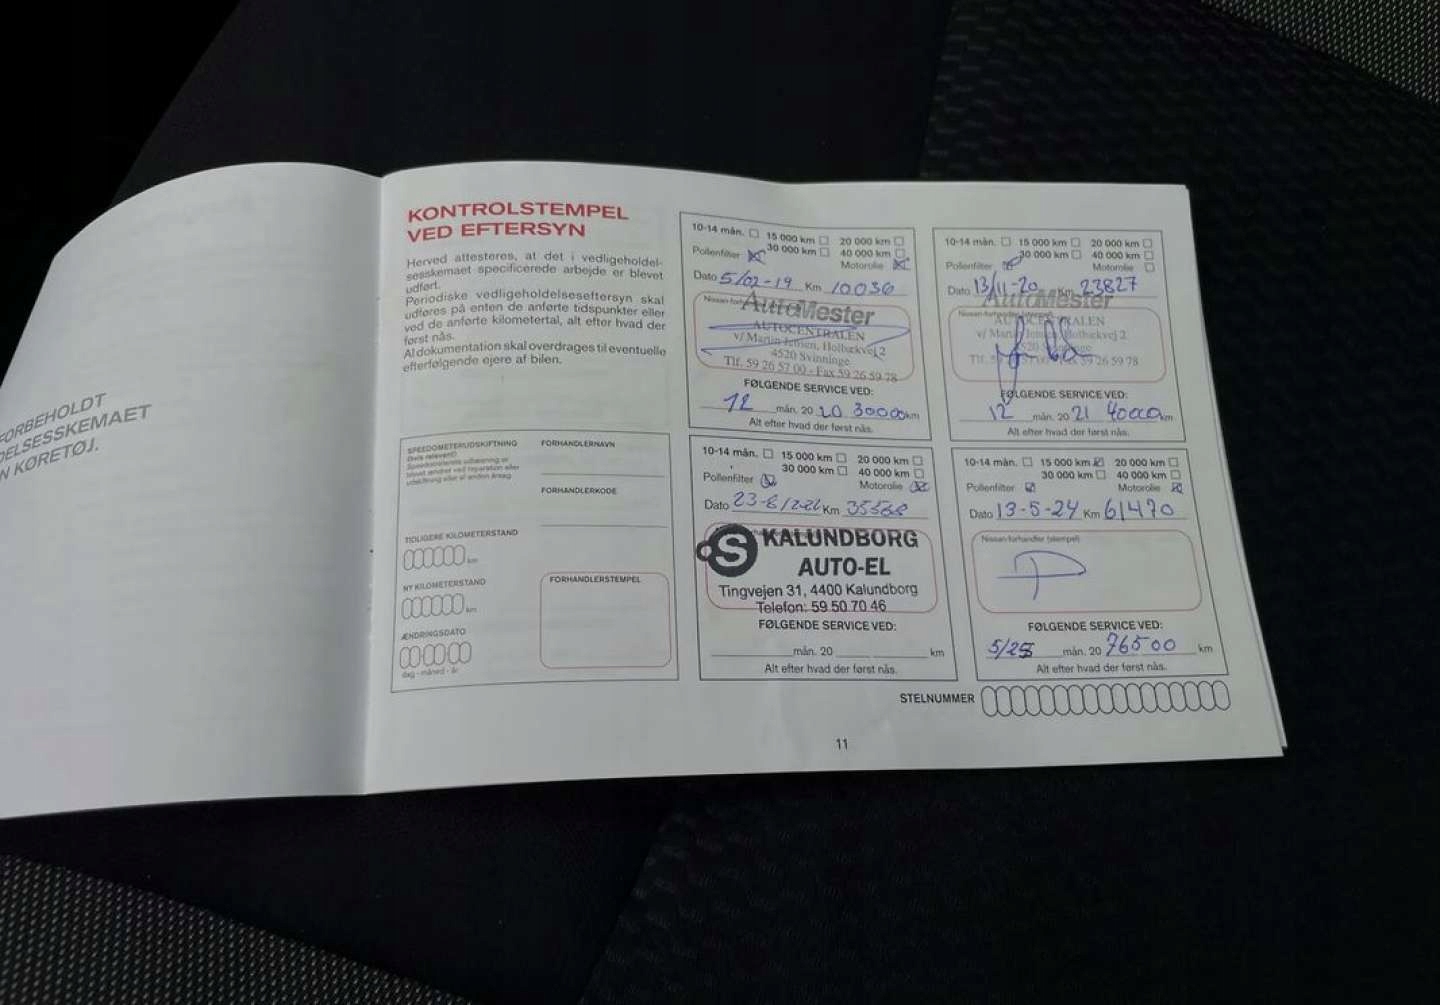 FORBEHOLDT
DELSESSKEMAET
N KØRETØJ.
KONTROLSTEMPEL
VED EFTERSYN
Herved attesteres, at det i vedligeholdel-
sesskemaet specificerede arbejde er blevet
udført.
Periodiske vedligeholdelseseftersyn skal
udføres på enten de anførte tidspunkter eller
ved de anførte kilometertal, alt efter hvad der
først nås.
Al dokumentation skal overdrages til eventuelle
efterfølgende ejere af bilen.
SPEEDOMETERUDSKIFTNING
(hvis relevant)
FORHANDLERNAVN
FORHANDLERKODE
TIDLIGERE KILOMETERSTAND
km
NY KILOMETERSTAND
km
ÆNDRINGSDATO
dag - måned - år
FORHANDLERSTEMPEL
10-14 mån. 15 000 km 20 000 km
30 000 km 40 000 km
Pollenfilter Motorolie
Dato 5/02-19 Km 10036
AutoMester
AUTOCENTRALEN
v/ Martin Jensen, Holbækvej 2
4520 Svinninge
Tlf. 59 26 57 00 - Fax 59 26 59 78
FØLGENDE SERVICE VED:
12 mån. 20 20 30000 km
Alt efter hvad der først nås.
10-14 mån. 15 000 km 20 000 km
30 000 km 40 000 km
Pollenfilter Motorolie
Dato 13/11-20 Km 23827
AutoMester
AUTOCENTRALEN
v/ Martin Jensen, Holbækvej 2
4520 Svinninge
Tlf. 59 57 00 - Fax 59 26 59 78
FØLGENDE SERVICE VED:
12 mån. 20 21 40000 km
Alt efter hvad der først nås.
10-14 mån. 15 000 km 20 000 km
30 000 km 40 000 km
Pollenfilter Motorolie
Dato Km
S KALUNDBORG
AUTO-EL
Tingvejen 31, 4400 Kalundborg
Telefon: 59 50 70 46
FØLGENDE SERVICE VED:
mån. 20 km
Alt efter hvad der først nås.
10-14 mån. 15 000 km 20 000 km
30 000 km 40 000 km
Pollenfilter Motorolie
Dato 13-5-24 Km 61470
Nissan-forhandler (stempel)
FØLGENDE SERVICE VED:
5/25 mån. 20 76500 km
Alt efter hvad der først nås.
STELNUMMER
11